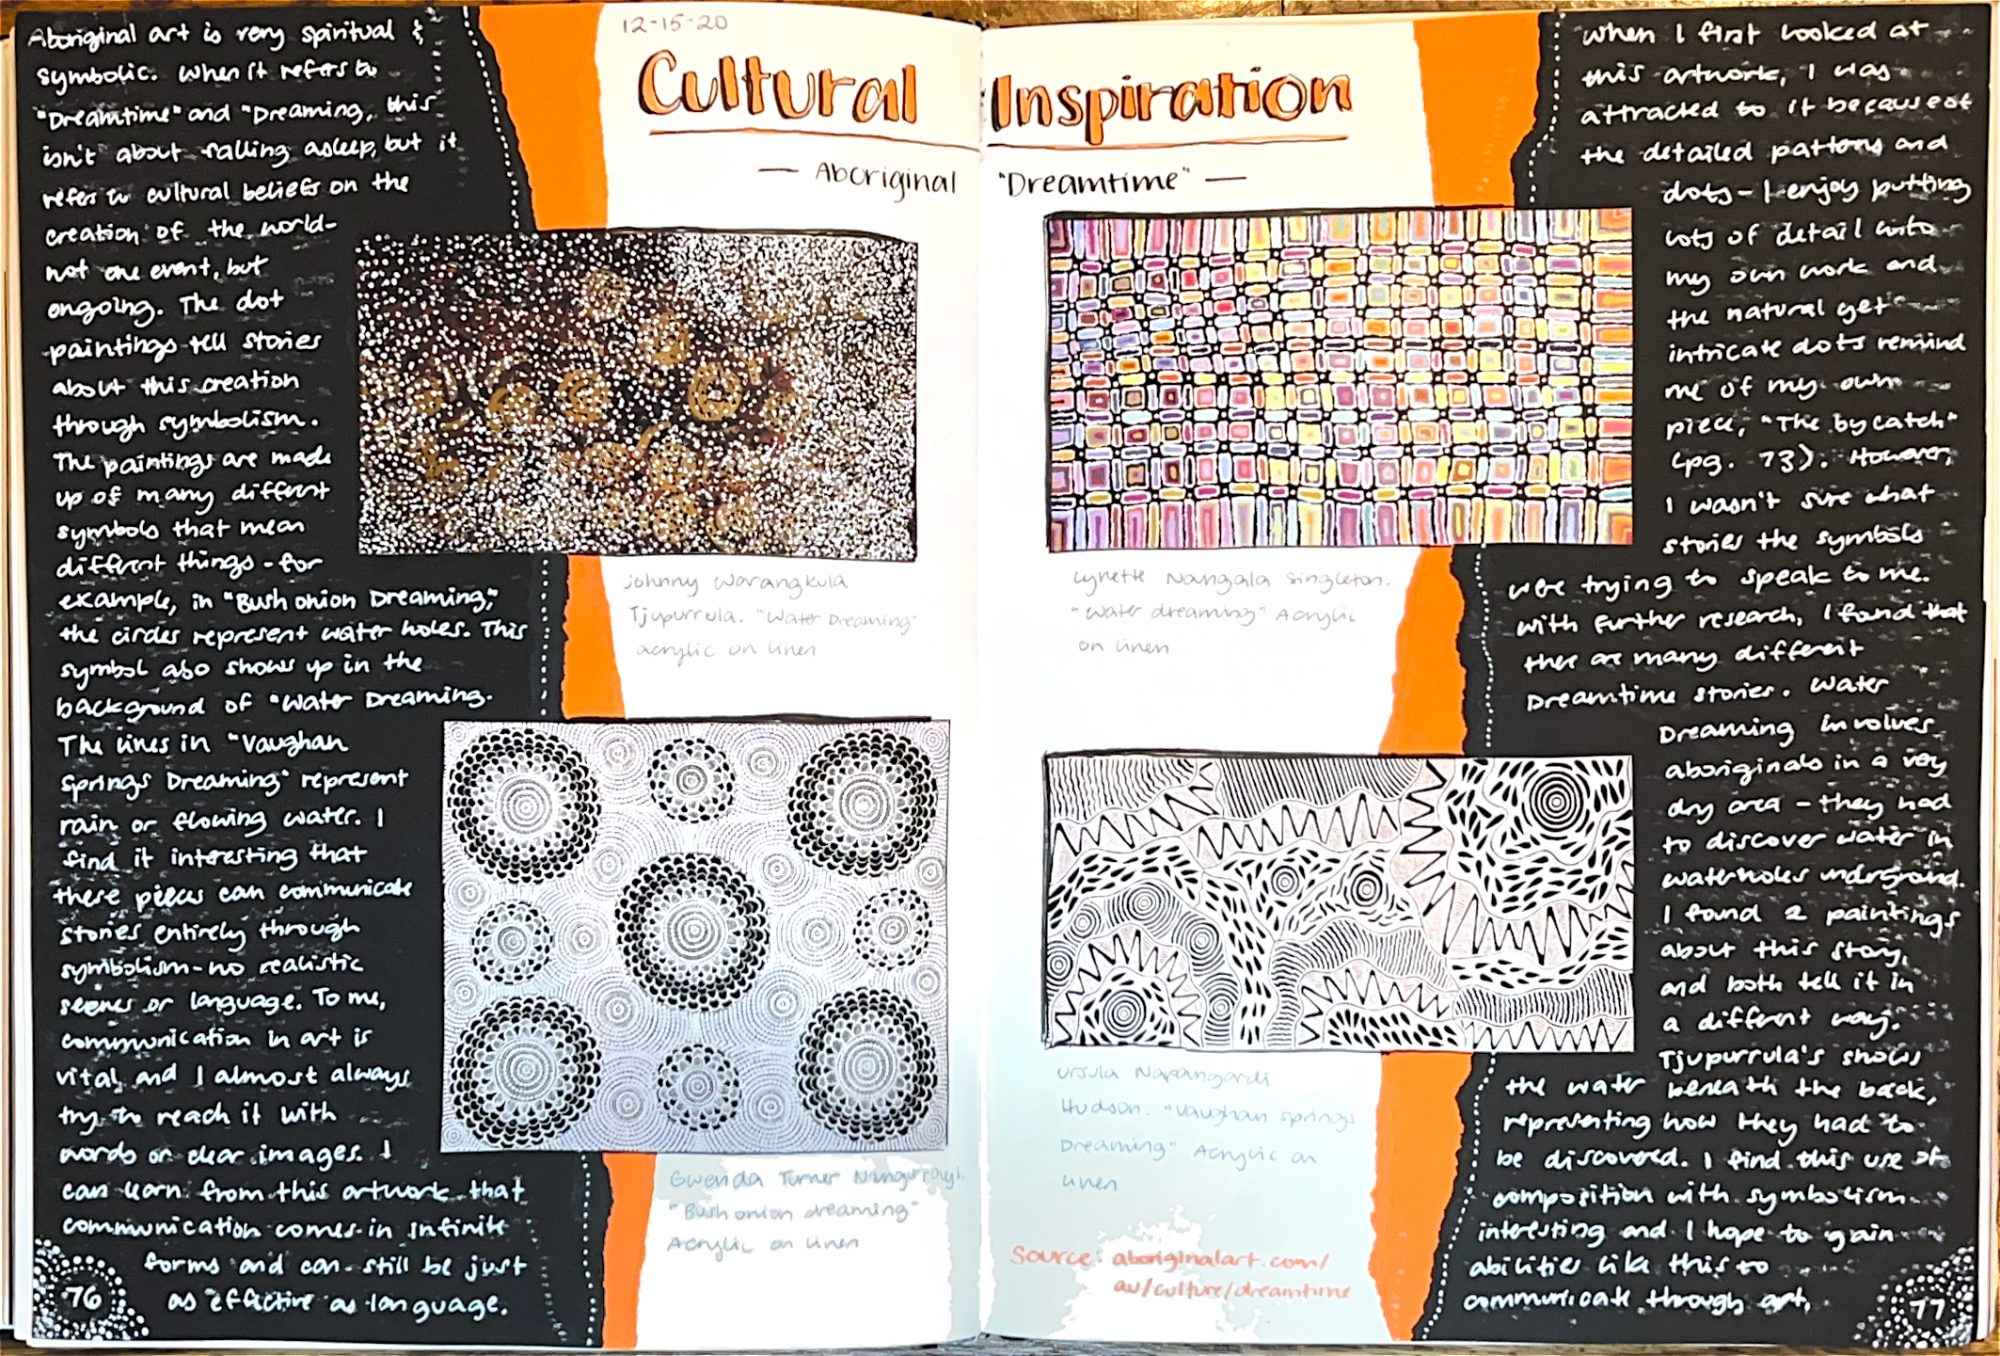 Aboriginal art is very spiritual &
symbolic. When it refers to
"Dreamtime" and "Dreaming, this
isn't about falling asleep, but it
refer to cultural beliefs on the
creation of the world-
not one event, but
ongoing. The dot
paintings tell stories
about this creation
through symbolism.
The paintings are made
up of many different
symbols that mean
different things - for
example, in "Bush onion Dreaming,"
the circles represent water holes. This
symbol also shows up in the
background of "Water Dreaming.
The lines in "Vaughan
Springs Dreaming" represent
rain or flowing water. I
find it interesting that
these pieces can communicate
stories entirely through
symbolism - no realistic
scenes or language. To me,
communication in art is
vital, and I almost always
try to reach it with
words or clear images. I
can learn from this artwork that
communication comes in infinite
forms and can still be just
as effective as language.
76
12-15-20
Cultural Inspiration
— Aboriginal "Dreamtime" —
Johnny Warangkula
Tjupurrula. "Water Dreaming"
acrylic on linen
Gwenda Turner Nungurrayi.
"Bush onion dreaming"
Acrylic on linen
Lynette Nangala Singleton.
"Water dreaming" Acrylic
on linen
Ursula Napangardi
Hudson. "Vaughan springs
Dreaming" Acrylic on
linen
Source: aboriginalart.com/
au/culture/dreamtime
When I first looked at
this artwork, I was
attracted to it because of
the detailed patterns and
dots - I enjoy putting
lots of detail into
my own work and
the natural yet
intricate dots remind
me of my own
piece, "The bycatch"
(pg. 73). However,
I wasn't sure what
stories the symbols
were trying to speak to me.
With further research, I found that
ther are many different
Dreamtime stories. Water
Dreaming involves
aboriginals in a very
dry area - they had
to discover water in
waterholes underground.
I found 2 paintings
about this story,
and both tell it in
a different way.
Tjupurrula's shows
the water beneath the back,
representing how they had to
be discovered. I find this use of
composition with symbolism
interesting and I hope to gain
abilities like this to
communicate through art.
77